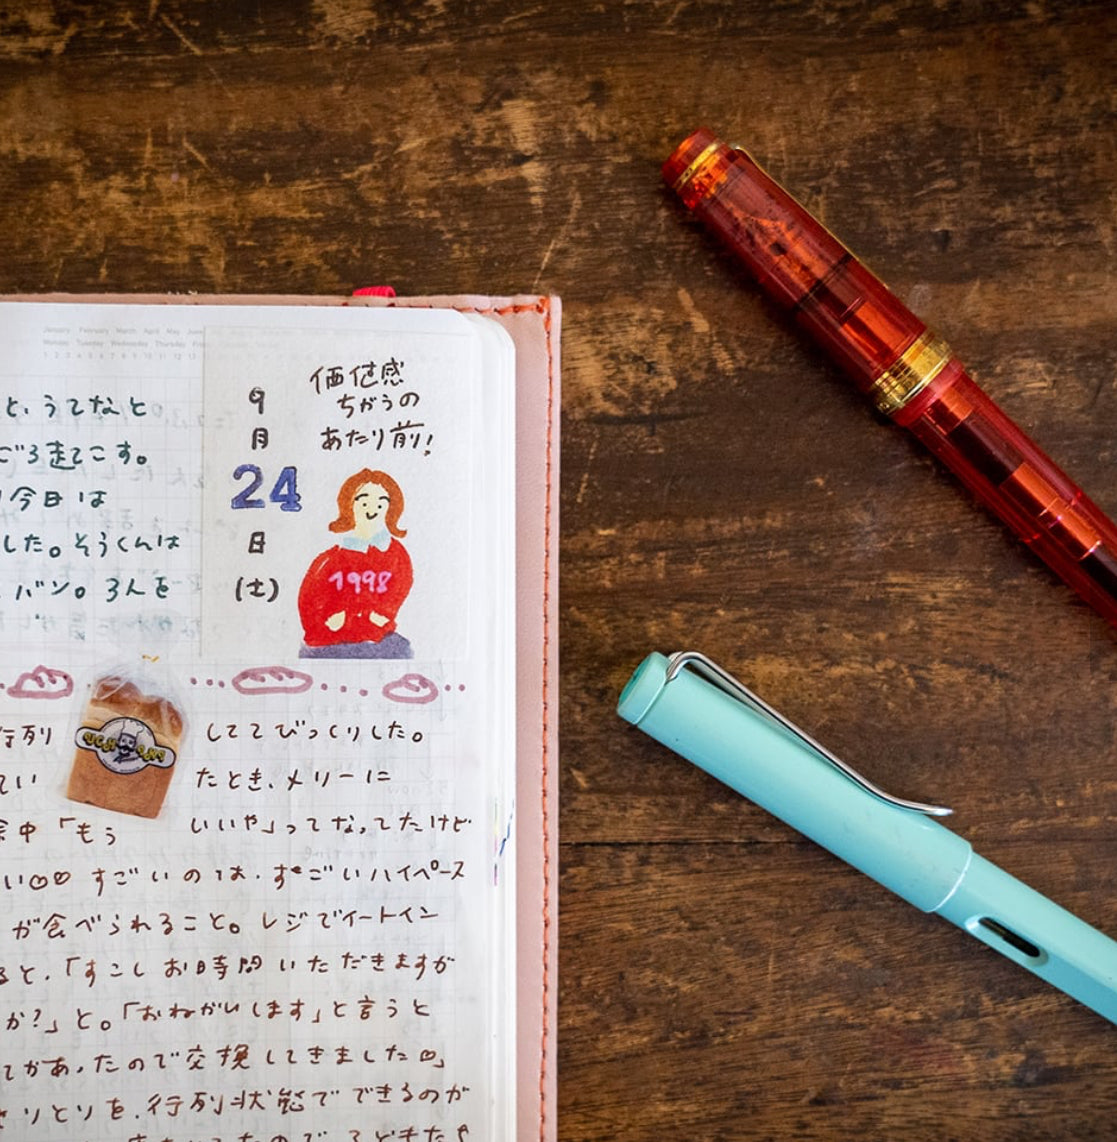 January February March April May June
Monday Tuesday Wednesday Thursday
1 2 3 4 5 6 7 8 9 10 11 12 13
と、うてなと
ごろ起こす。
今日は
した。そうくんは
パン。3人を
9
月
24
日
(土)
価値感
ちがうの
あたり前!
1998
行列
してて びっくりした。
てい
たとき、メリーに
中「もう
いいや」ってなってたけど
い すごいのは、すごいハイペース
が食べられること。レジでイートイン
ると、「すこし お時間 いただきますが
か?」と。「おねがいします」と言うと
てがあったので交換してきました
りとりを、行列状態でできるのが